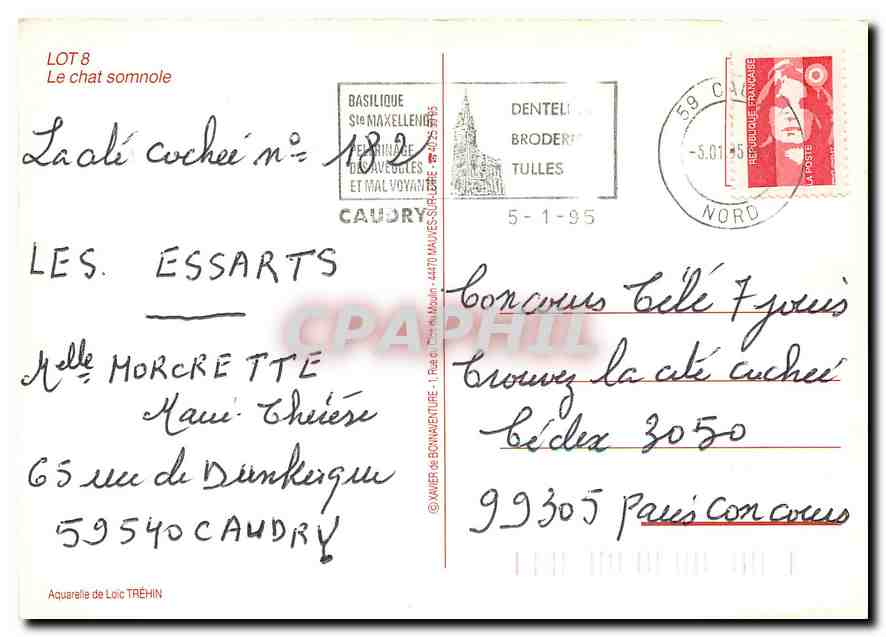 LOT 8
Le chat somnole
BASILIQUE
Ste MAXELLENDE
PELERINAGE
DES AVEUGLES
ET MAL VOYANTS
DENTELLES
BRODERIE
TULLES
CAUDRY
5-1-95
59 CAU
-5.01.95
NORD
REPUBLIQUE FRANÇAISE
LA POSTE
La cité cachée n° 182
LES. ESSARTS
Melle MORCRETTE
Marie-Thérèse
65 rue de Dunkerque
59540 CAUDRY
Aquarelle de Loïc TRÉHIN
© XAVIER de BONNAVENTURE - 1, Rue du Clos du Moulin - 44470 MAUVES-SUR-LOIRE - ☎ 40 25
CPAPHIL
Concours Télé 7 jours
Trouvez la cité cachée
Cédex 3050
99305 Paris Concours